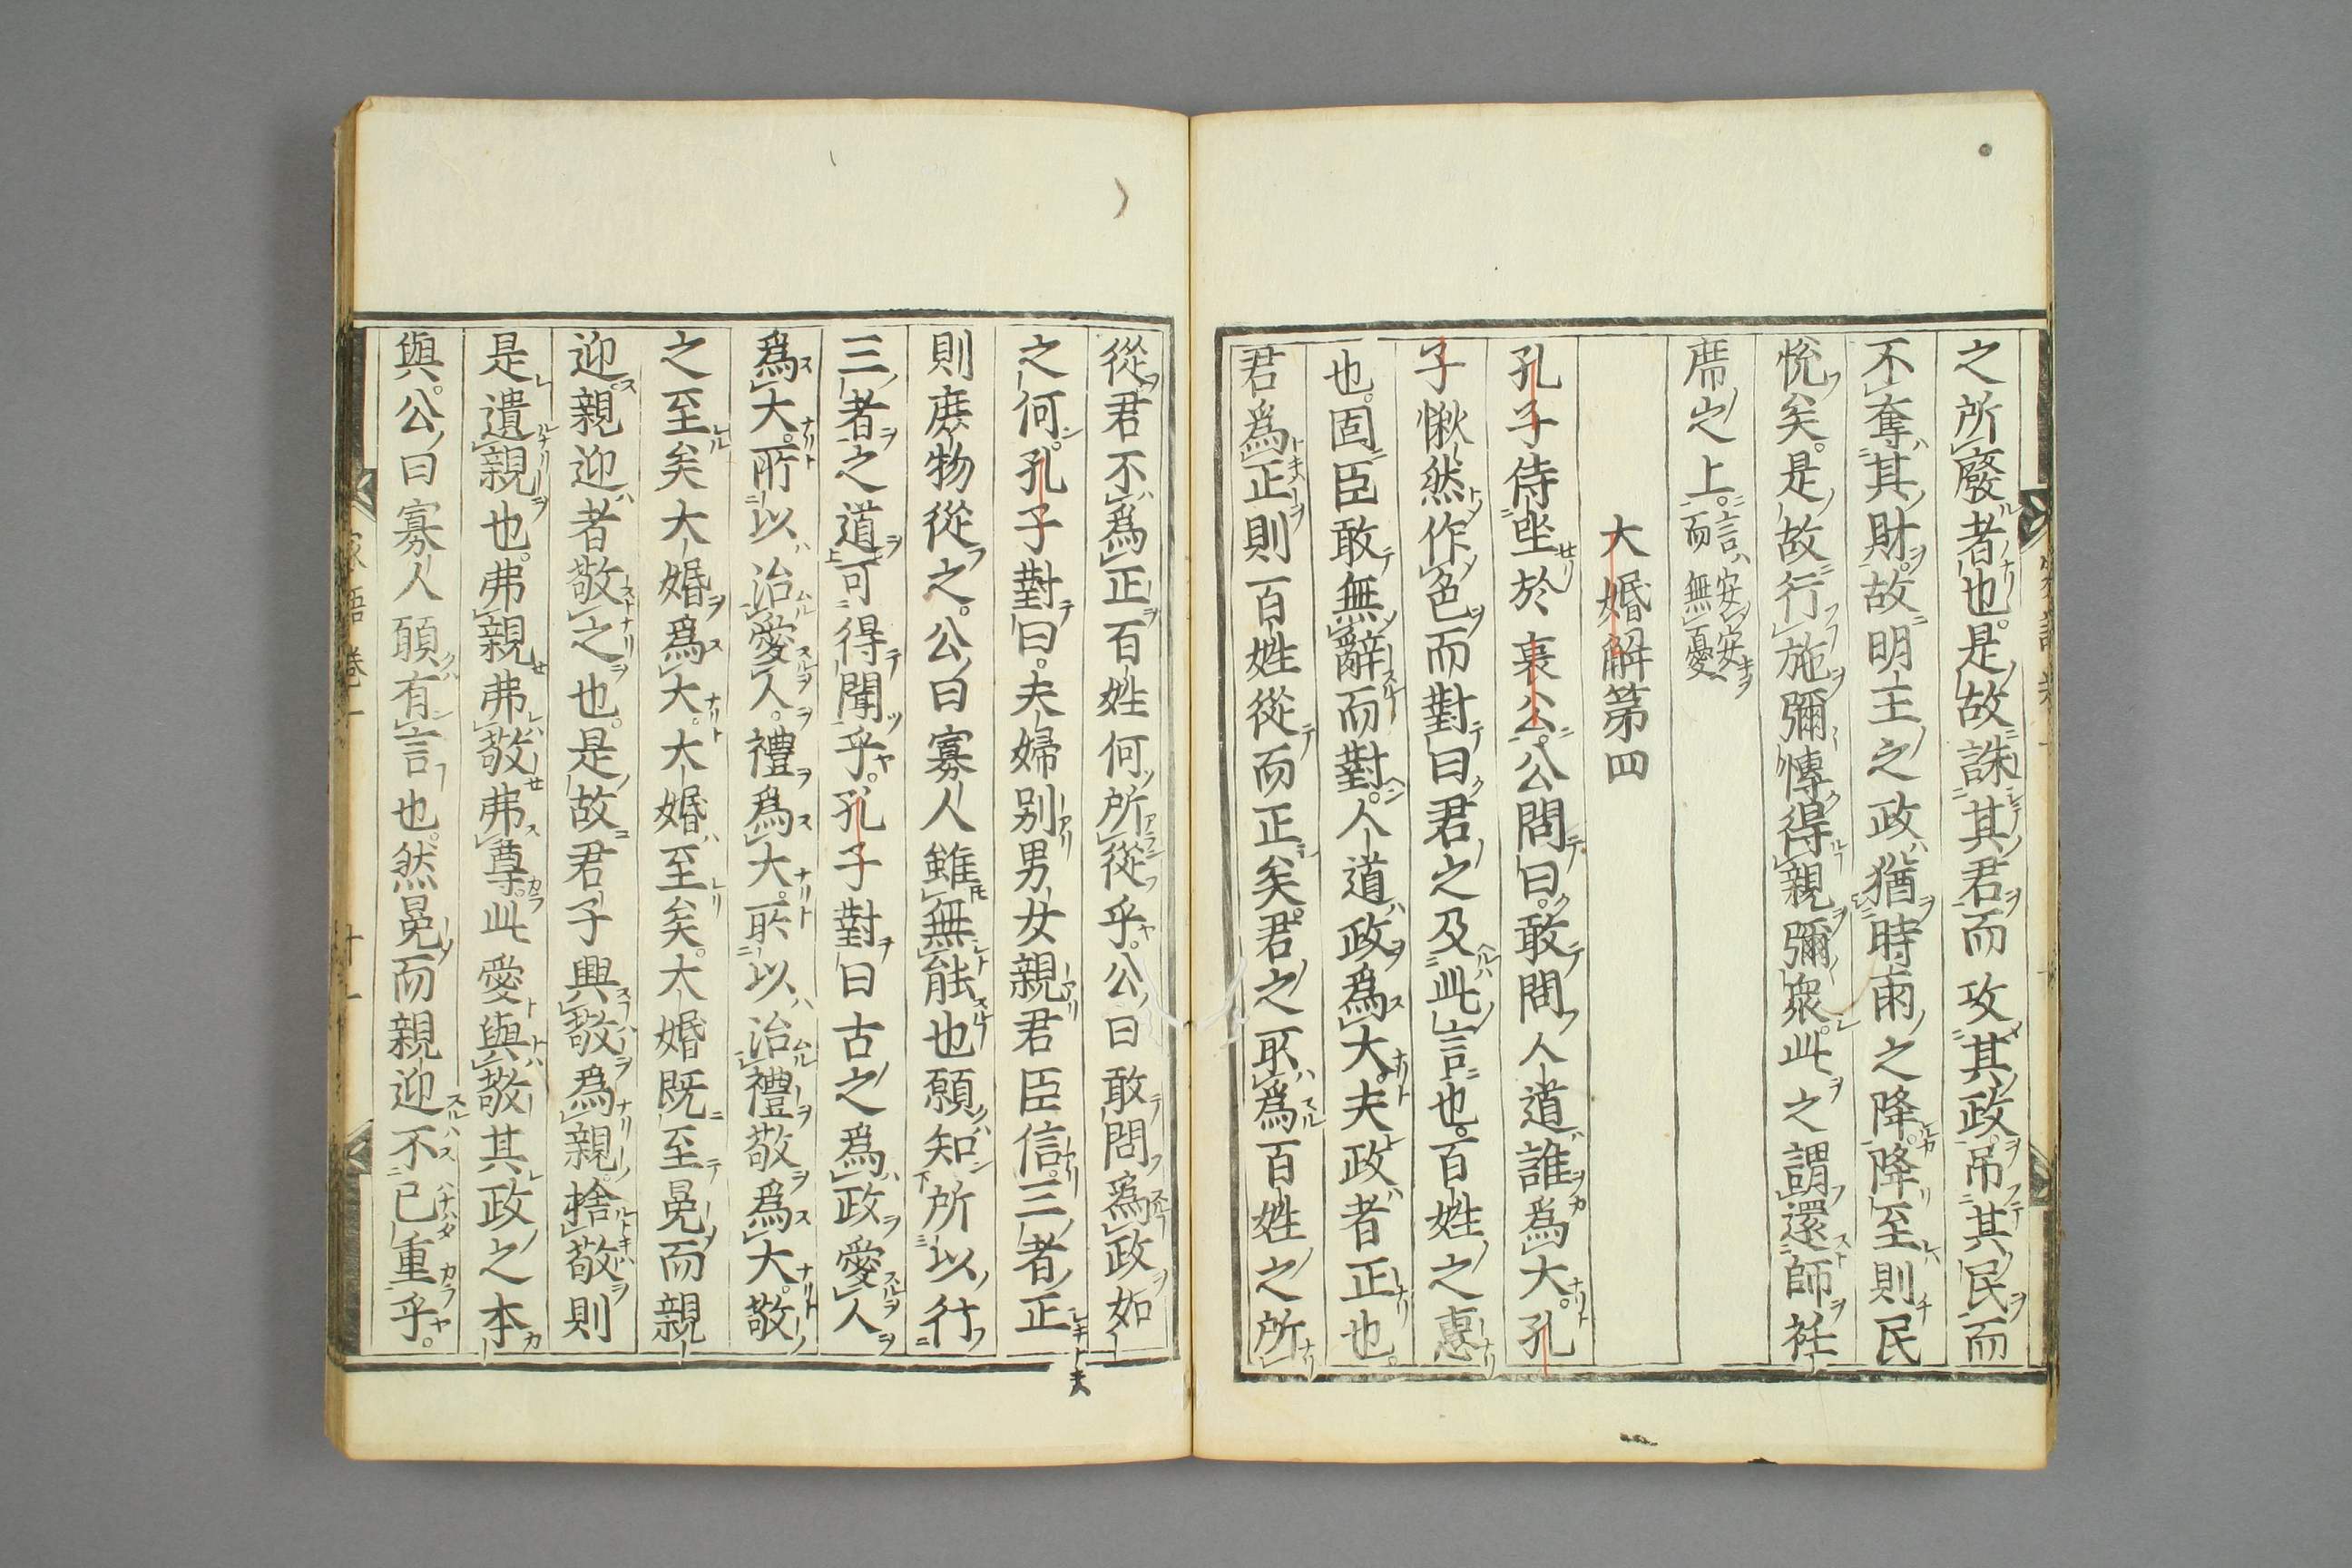 之所廢者也是故誅其君而攻其政吊其民而
不奪其財故明主之政猶時雨之降降至則民
悅矣是故行施彌愽得親彌衆此之謂還師衽
席之上言安安而無憂
大婚解第四
孔子侍坐於哀公公問曰敢問人道誰爲大孔
子愀然作色而對曰君之及此言也百姓之惠
也固臣敢無辭而對人道政爲大夫政者正也
君爲正則百姓從而正矣君之所爲百姓之所
從君不爲正百姓何所從乎公曰敢問爲政如
之何孔子對曰夫婦别男女親君臣信三者正
則庶物從之公曰寡人雖無能也願知所以行
三者之道可得聞乎孔子對曰古之爲政愛人
爲大所以治愛人禮爲大所以治禮敬爲大敬
之至矣大婚爲大大婚至矣大婚既至冕而親
迎親迎者敬之也是故君子興敬爲親捨敬則
是遺親也弗親弗敬弗尊此愛與敬其政之本
與公曰寡人願有言也然冕而親迎不已重乎
家語卷一 十一